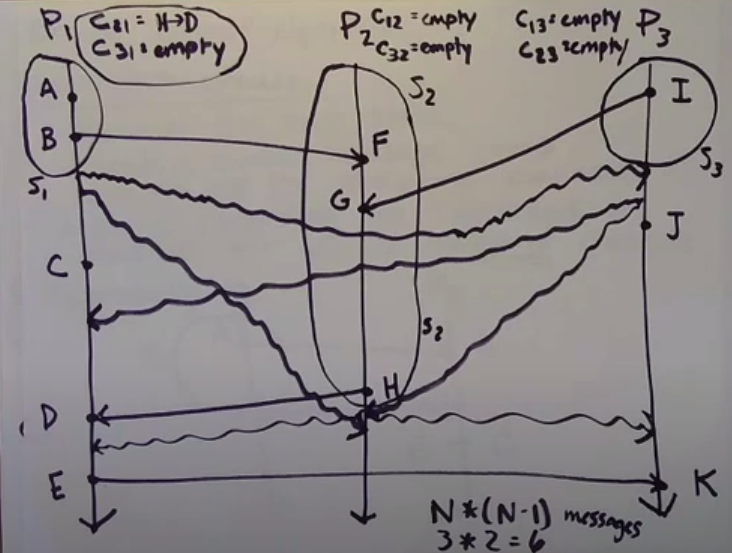 P1 C21 = H→D
C31 = empty
P2 C12 = empty
C32 = empty
C13 = empty P3
C23 = empty
A
B
S1
C
D
E
S2
F
G
S2
H
I
S3
J
K
N * (N-1) messages
3 * 2 = 6